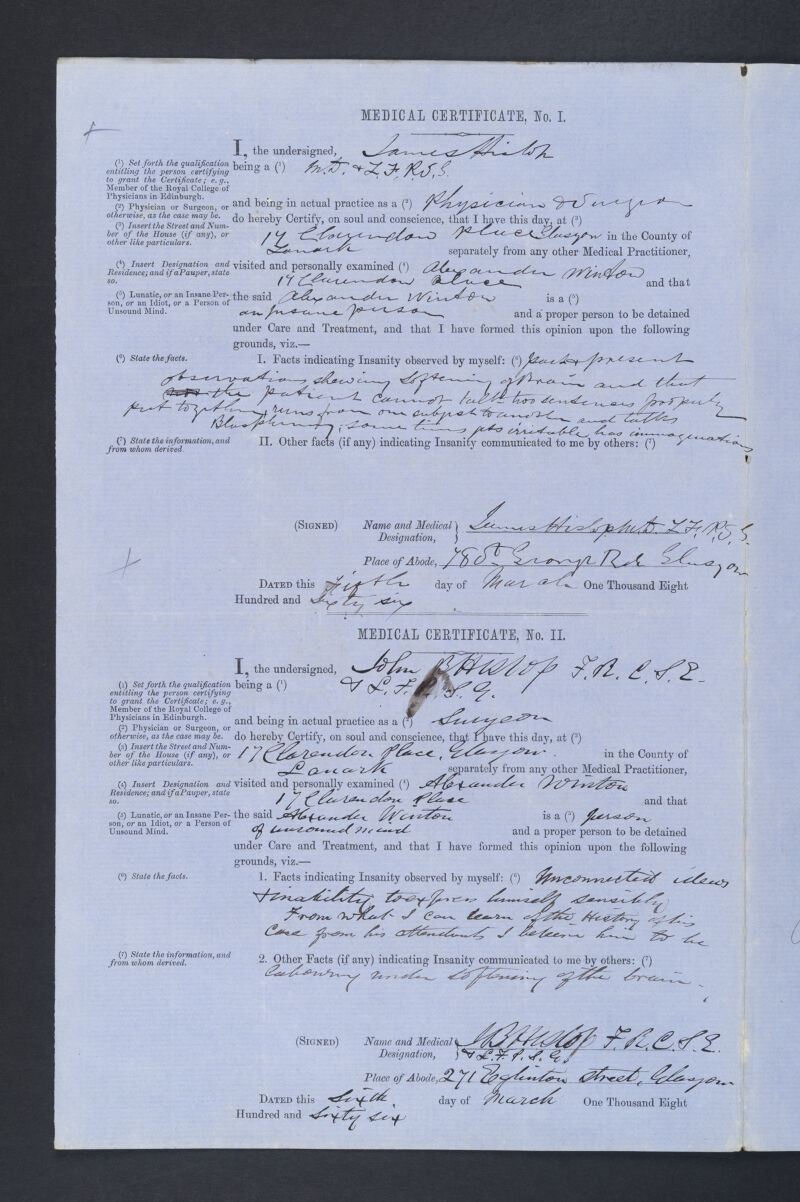 MEDICAL CERTIFICATE, No. I.
I, the undersigned, James Hislop
(1) Set forth the qualification entitling the person certifying to grant the Certificate; e.g., Member of the Royal College of Physicians in Edinburgh.
being a (1) M.D. & L.F.P.S.G.
(2) Physician or Surgeon, or otherwise, as the case may be.
and being in actual practice as a (2) Physician & Surgeon
do hereby Certify, on soul and conscience, that I have this day, at (3)
(3) Insert the Street and Number of the House (if any), or other like particulars.
17 Clarendon Place Glasgow in the County of
Lanark separately from any other Medical Practitioner,
(4) Insert Designation and Residence; and if a Pauper, state so.
visited and personally examined (4) Alexander Winton
17 Clarendon Place and that
(5) Lunatic, or an Insane Person, or an Idiot, or a Person of Unsound Mind.
the said Alexander Winton is a (5)
an Insane person and a proper person to be detained
under Care and Treatment, and that I have formed this opinion upon the following
grounds, viz.—
(6) State the facts.
I. Facts indicating Insanity observed by myself: (6) past & present
observations shewing Softening of Brain and that
the patient cannot talk two sentences properly
put together, runs from one subject to another and talks
Blasphemy, some times gets irritable has immaginations
(7) State the information, and from whom derived.
II. Other facts (if any) indicating Insanity communicated to me by others: (7)
(SIGNED) Name and Medical Designation, James Hislop M.D. L.F.P.S.G.
Place of Abode, St George Rd Glasgow
DATED this Fifth day of March One Thousand Eight
Hundred and Sixty six
MEDICAL CERTIFICATE, No. II.
I, the undersigned, John B Hislop F.R.C.S.E.
(1) Set forth the qualification entitling the person certifying to grant the Certificate; e.g., Member of the Royal College of Physicians in Edinburgh.
being a (1) & L.F.P.S.G.
(2) Physician or Surgeon, or otherwise, as the case may be.
and being in actual practice as a (2) Surgeon
do hereby Certify, on soul and conscience, that I have this day, at (3)
(3) Insert the Street and Number of the House (if any), or other like particulars.
17 Clarendon Place, Glasgow. in the County of
Lanark separately from any other Medical Practitioner,
(4) Insert Designation and Residence; and if a Pauper, state so.
visited and personally examined (4) Alexander Winton
17 Clarendon Place and that
(5) Lunatic, or an Insane Person, or an Idiot, or a Person of Unsound Mind.
the said Alexander Winton is a (5) person
of unsound mind and a proper person to be detained
under Care and Treatment, and that I have formed this opinion upon the following
grounds, viz.—
(6) State the facts.
1. Facts indicating Insanity observed by myself: (6) Unconnected ideas
& inability to express himself sensibly
From what I can learn of the History of his
Case from his attendants I believe him to be
(7) State the information, and from whom derived.
2. Other Facts (if any) indicating Insanity communicated to me by others: (7)
labouring under Softening of the brain.
(SIGNED) Name and Medical Designation, J B Hislop F.R.C.S.E.
& L.F.P.S.G.
Place of Abode, 271 Eglinton Street, Glasgow
DATED this Sixth day of March One Thousand Eight
Hundred and Sixty six